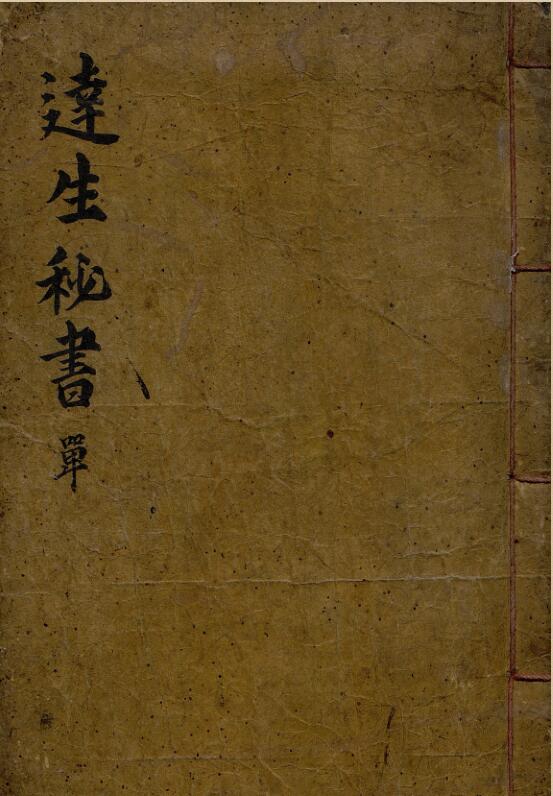 達生秘書 單